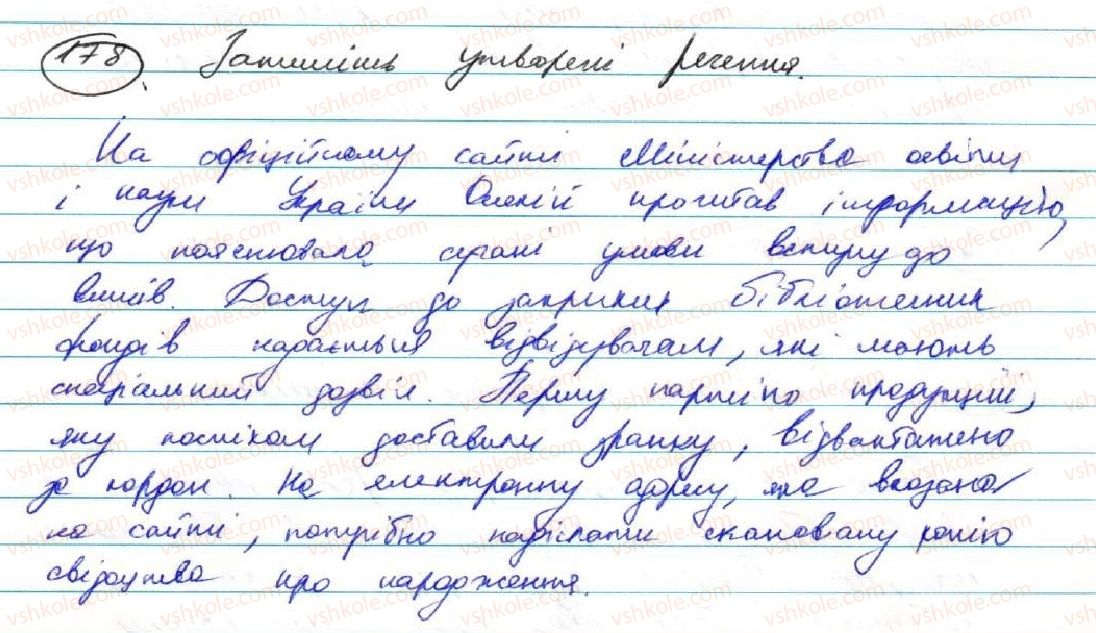 178. Запишіть утворені речення.
На офіційному сайті Міністерства освіти
і науки України Олексій прочитав інформацію,
що пояснювала окремі умови вступу до
вишів. Доступ до закритих бібліотечних
фондів надається відвідувачам, які мають
спеціальний дозвіл. Першу партію продукції,
яку поспіхом доставили зранку, відвантажено
за кордон. На електронну адресу, яка вказана
на сайті, потрібно надіслати скановану копію
свідоцтва про народження.